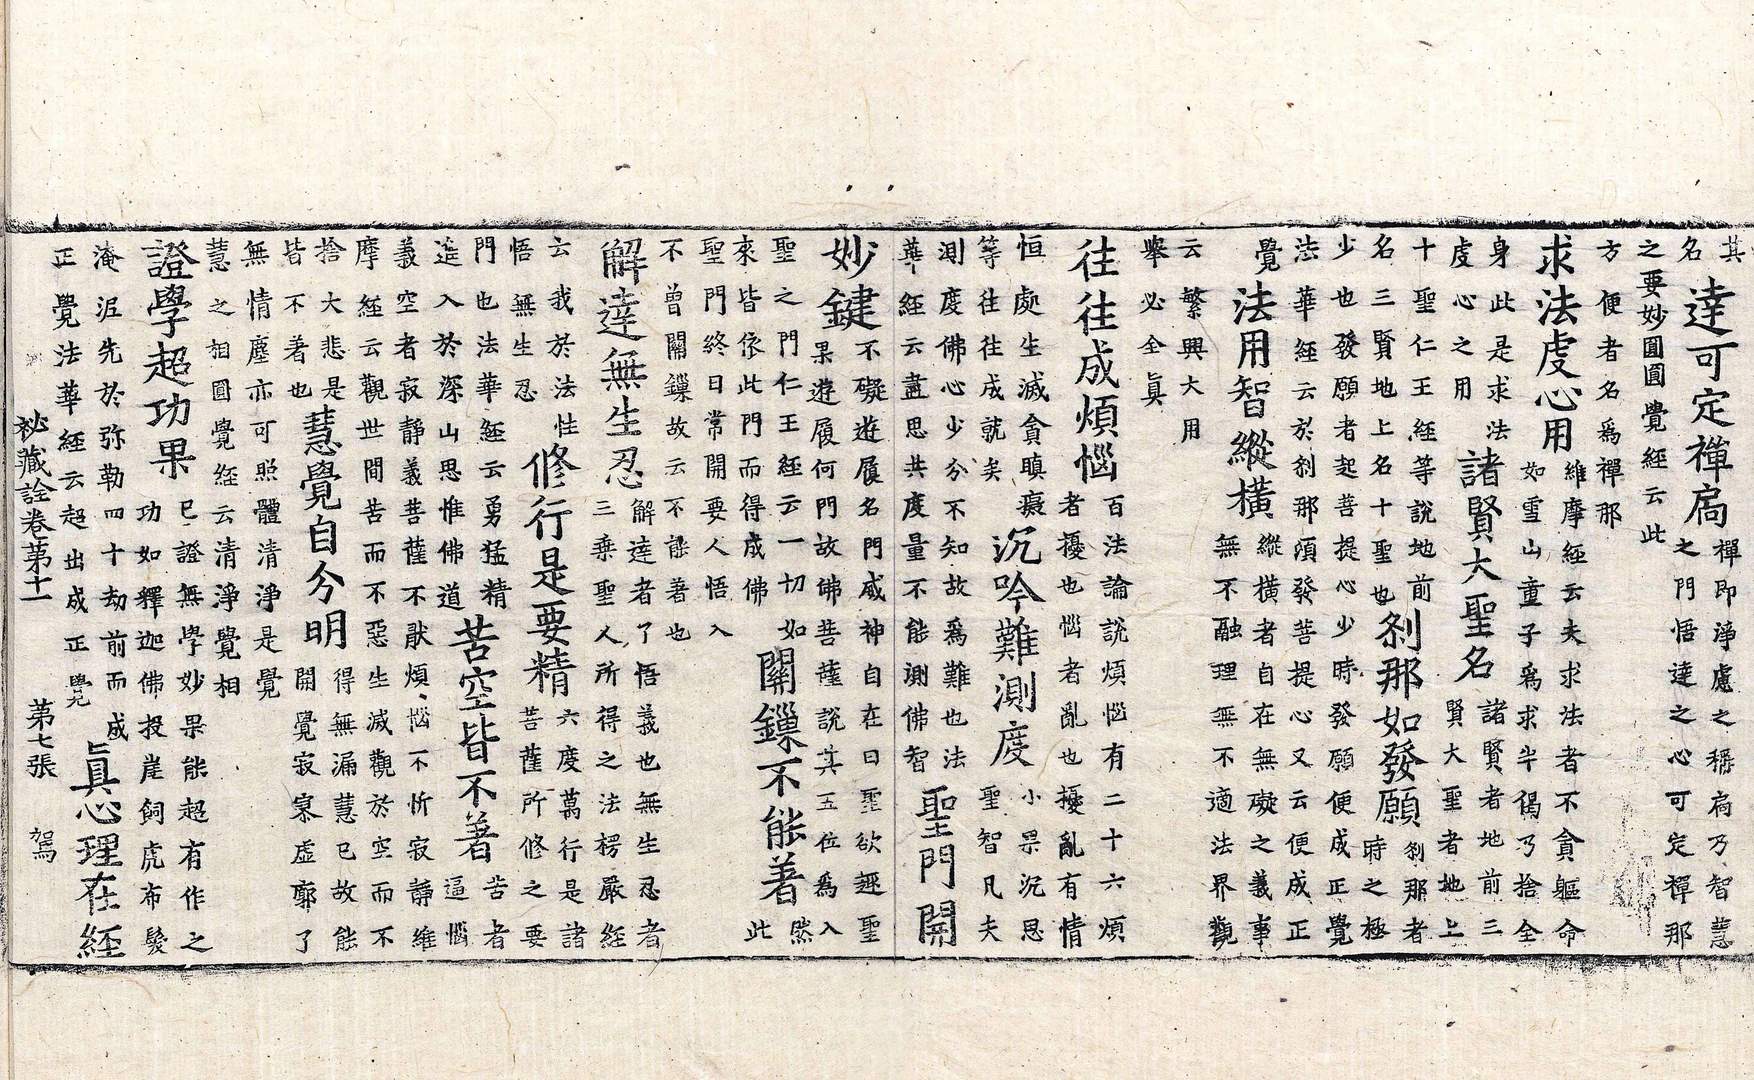 其
名
達可定禪扃
禪即淨慮之稱扃乃智慧
之門悟達之心可定禪那
之要妙圓圓覺經云此
方便者名爲禪那
求法虔心用
維摩經云夫求法者不貪軀命
如雪山童子爲求半偈乃捨全
身此是求法
虔心之用
諸賢大聖名
諸賢者地前三
賢大聖者地上
十聖仁王經等說地前
名三賢地上名十聖也
剎那如發願
剎那者
時之極
少也發願者起菩提心少時發願便成正覺
法華經云於剎那頃發菩提心又云便成正
覺
法用智縱橫
縱橫者自在無礙之義事
無不融理無不適法界觀
云繁興大用
舉必全眞
往往成煩惱
百法論說煩惱有二十六煩
者擾也惱者亂也擾亂有情
恒處生滅貪瞋癡
等往往成就矣
沉吟難測度
小果沉思
聖智凡夫
測度佛心少分不知故爲難也法
華經云盡思共度量不能測佛智
聖門開
妙鍵
不礙遊履名門威神自在曰聖欲趣聖
果遊履何門故佛菩薩說其五位爲入
聖之門仁王經云一切如
來皆依此門而得成佛
關鏁不能著
然
此
聖門終日常開要人悟入
不曾關鏁故云不能著也
解達無生忍
解達者了悟義也無生忍者
三乘聖人所得之法楞嚴經
云我於法性
悟無生忍
修行是要精
六度萬行是諸
菩薩所修之要
門也法華經云勇猛精
進入於深山思惟佛道
苦空皆不著
苦者
逼惱
義空者寂靜義菩薩不猒煩惱不忻寂靜維
摩經云觀世間苦而不惡生滅觀於空而不
捨大悲是
皆不著也
慧覺自分明
得無漏慧已故能
開覺寂寞虛廓了
無情塵亦可照體清淨是覺
慧之相圓覺經云清淨覺相
證學超功果
已證無學妙果能超有作之
功如釋迦佛投崖飼虎布髮
淹泥先於弥勒四十劫前而成
正覺法華經云超出成正覺
眞心理在經
秘藏詮卷第十一 第七張 駕